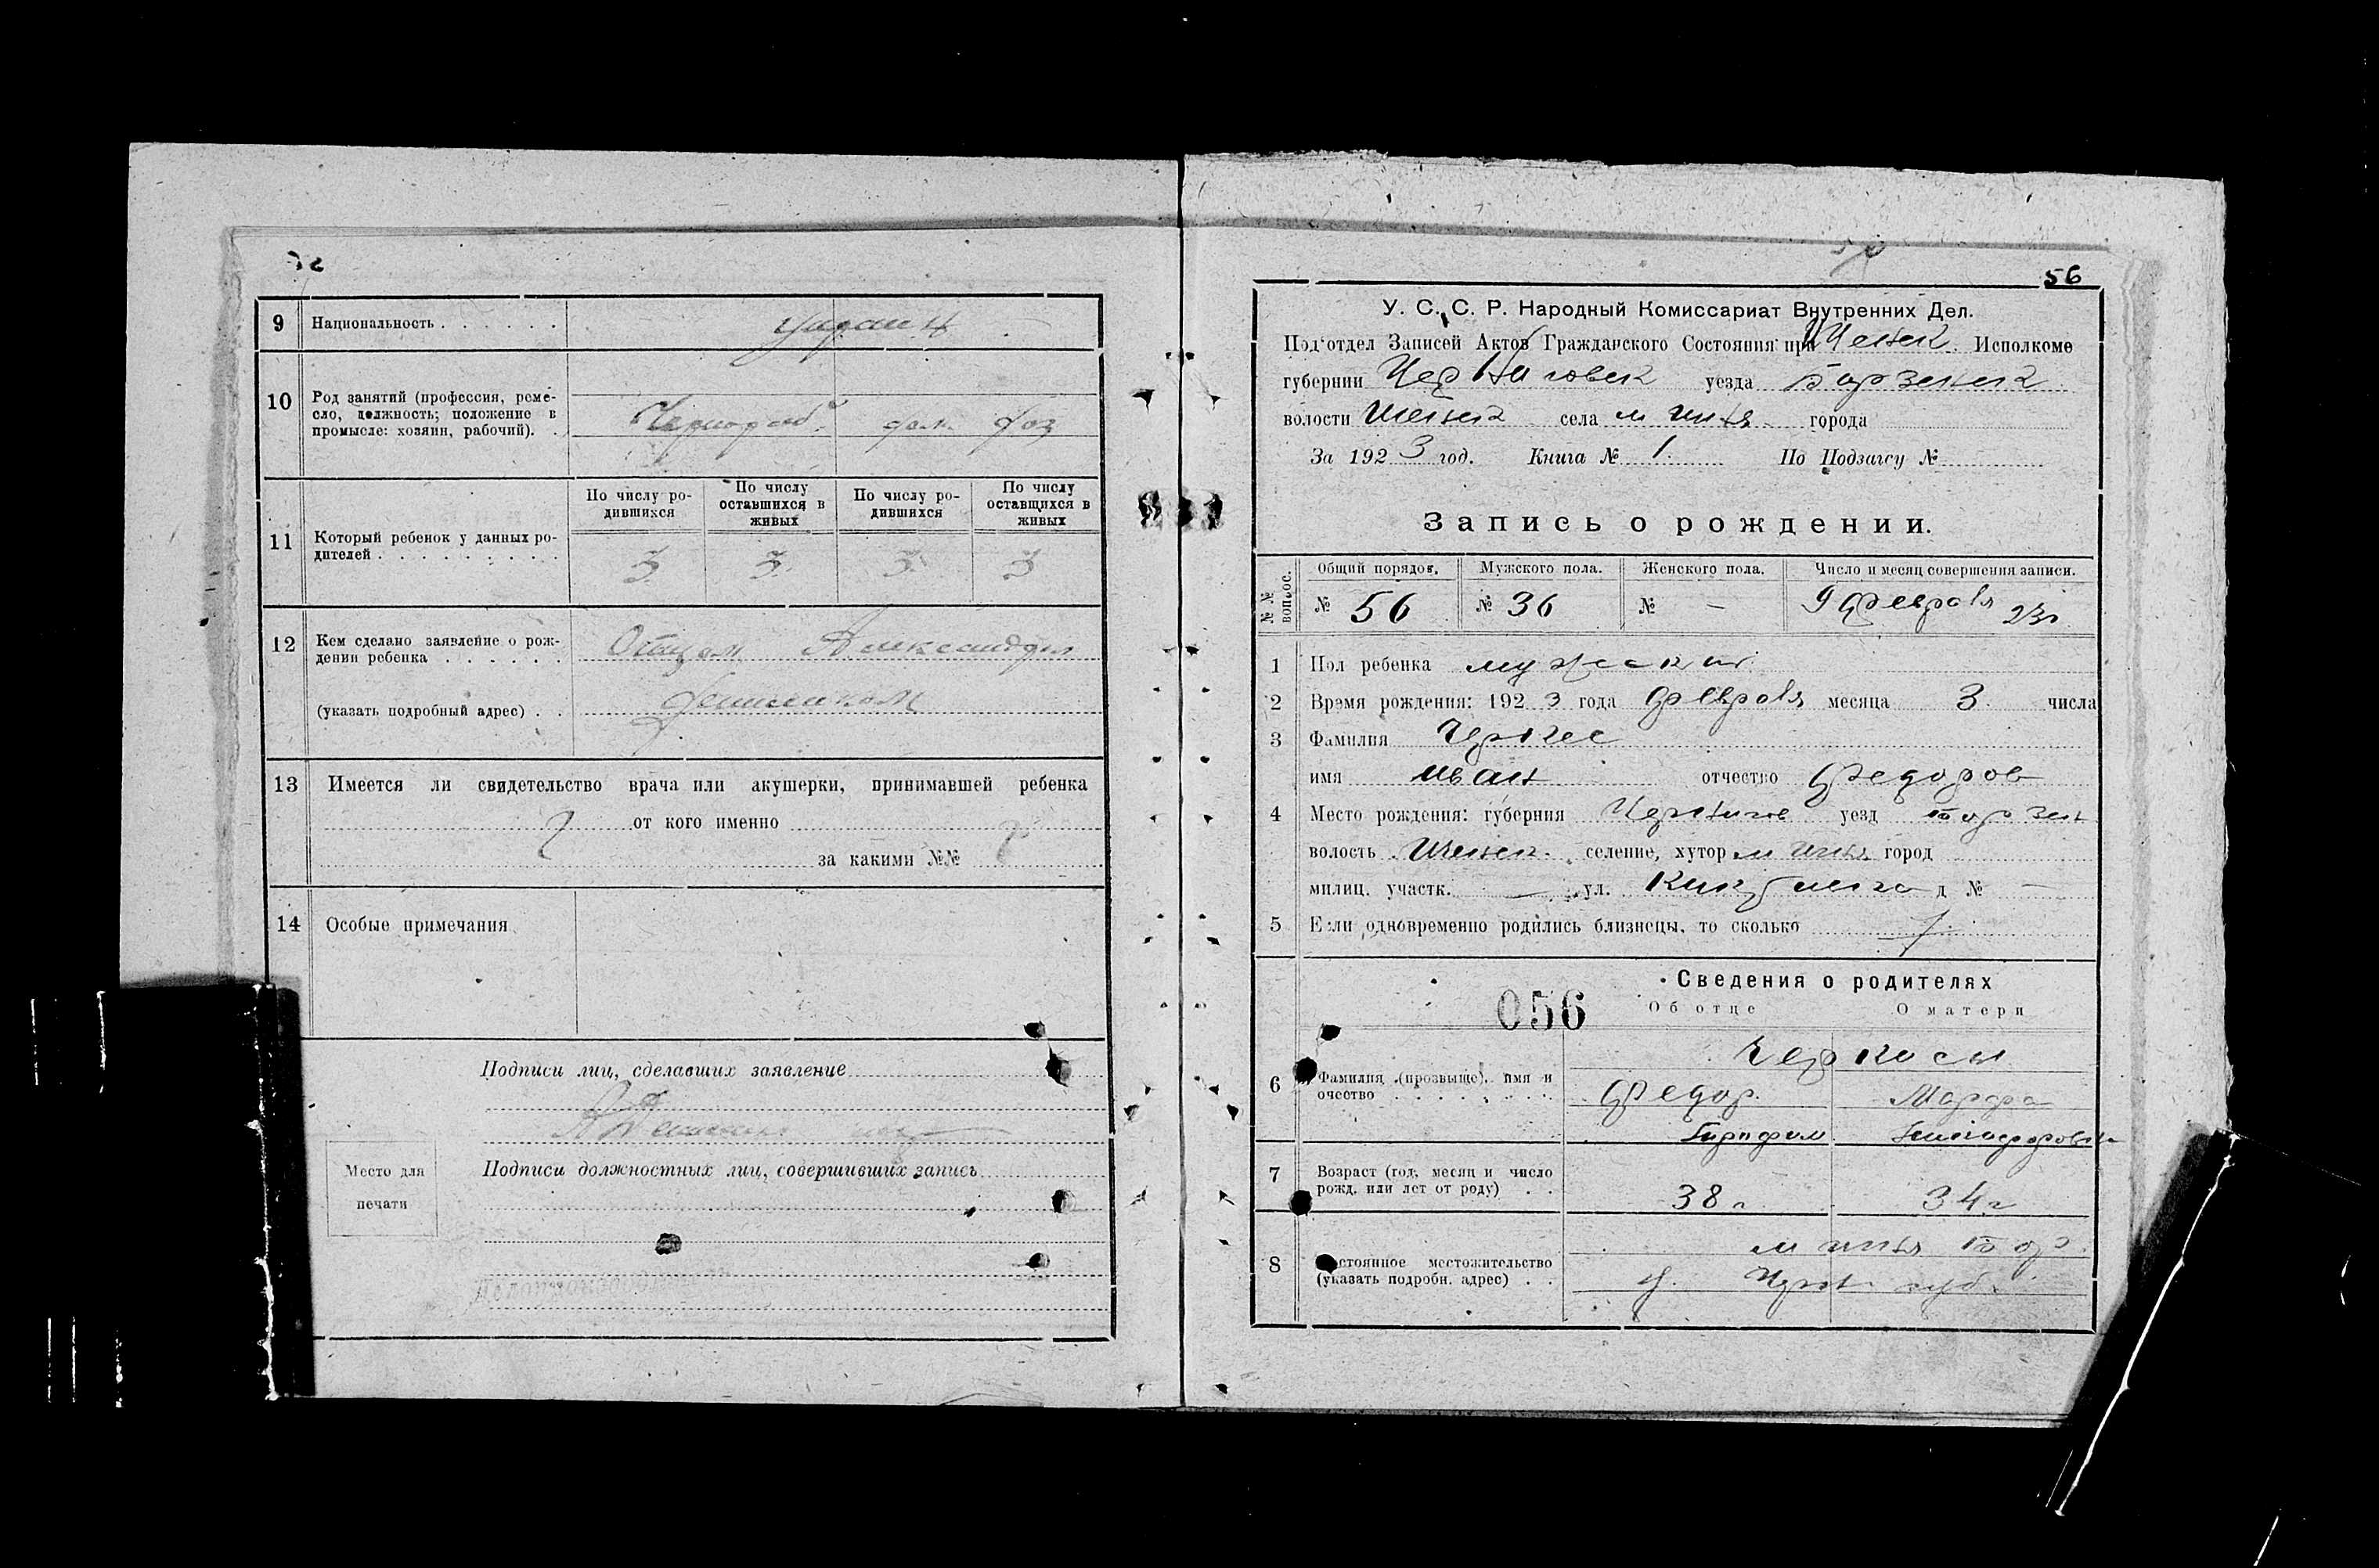 9 Национальность
10 Род занятий (профессия, реме-
сло, должность; положение в
промысле: хозяин, рабочий).
11 Который ребенок у данных ро-
дителей
По числу ро-
дившихся
По числу
оставшихся в
живых
По числу ро-
дившихся
По числу
оставшихся в
живых
3 3 3 3
12 Кем сделано заявление о рож-
дении ребенка Отцом Александром
(указать подробный адрес)
13 Имеется ли свидетельство врача или акушерки, принимавшей ребенка
от кого именно
за какими №№
14 Особые примечания
Подписи лиц, сделавших заявление
Место для
печати
Подписи должностных лиц, совершивших запись
56
У. С. С. Р. Народный Комиссариат Внутренних Дел.
Под'отдел Записей Актов Гражданского Состояния при Исполкоме
губернии Черниговск уезда Борзенск
волости села м города
За 1923 год. Книга № 1. По Подзагсу №
Запись о рождении.
№ № вопрос.
Общий порядок. Мужского пола. Женского пола. Число и месяц совершения записи.
№ 56 № 36 № — 9 февраля 23
1 Пол ребенка мужской
2 Время рождения: 1923 года февраля месяца 3 числа
3 Фамилия Черкес
имя Иван отчество Федоров
4 Место рождения: губерния Чернигов уезд Борзен
волость селение, хутор м город
милиц. участк. — ул. д № —
5 Если одновременно родились близнецы, то сколько
Сведения о родителях
056
Об отце О матери
6 Фамилия (прозвище), имя и
очество
Черкасы
Федор Марфа
7 Возраст (год, месяц и число
рожд. или лет от роду)
38 г 34 г
8 Постоянное местожительство
(указать подробн. адрес)
м Бор
у. Черн губ.